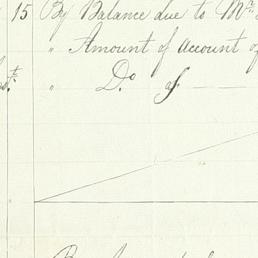 15 By Balance due to Mr.
" Amount of account of
" Do. of